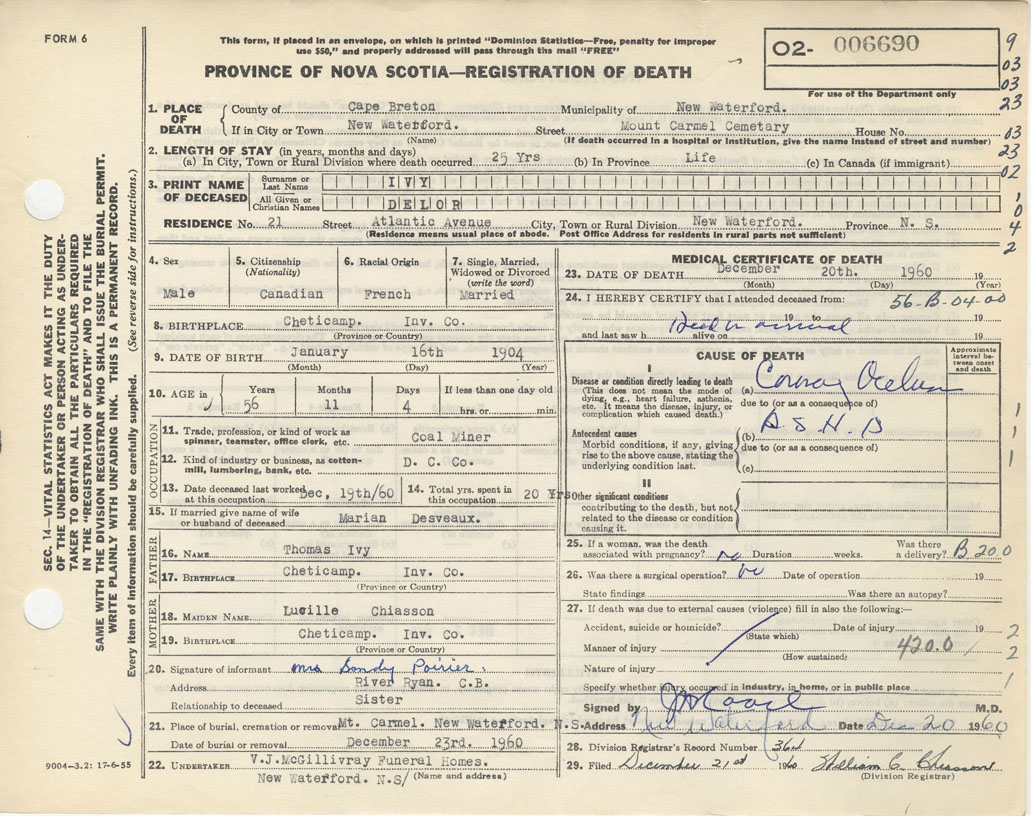 FORM 6
This form, if placed in an envelope, on which is printed "Dominion Statistics—Free, penalty for improper
use $50," and properly addressed will pass through the mail "FREE"
PROVINCE OF NOVA SCOTIA—REGISTRATION OF DEATH
02- 006690
For use of the Department only
9
03
03
23
03
23
02
1
0
4
2
SEC. 14—VITAL STATISTICS ACT MAKES IT THE DUTY
OF THE UNDERTAKER OR PERSON ACTING AS UNDER-
TAKER TO OBTAIN ALL THE PARTICULARS REQUIRED
IN THE "REGISTRATION OF DEATH" AND TO FILE THE
SAME WITH THE DIVISION REGISTRAR WHO SHALL ISSUE THE BURIAL PERMIT.
WRITE PLAINLY WITH UNFADING INK. THIS IS A PERMANENT RECORD.
Every item of information should be carefully supplied. (See reverse side for instructions.)
1. PLACE OF DEATH
County of Cape Breton Municipality of New Waterford.
If in City or Town New Waterford. Street Mount Carmel Cemetary House No.
(Name) (If death occurred in a hospital or institution, give the name instead of street and number)
2. LENGTH OF STAY (in years, months and days)
(a) In City, Town or Rural Division where death occurred 25 Yrs (b) In Province Life (c) In Canada (if immigrant)
3. PRINT NAME OF DECEASED
Surname or Last Name IVY
All Given or Christian Names DELOR
RESIDENCE No. 21 Street Atlantic Avenue City, Town or Rural Division New Waterford. Province N. S.
(Residence means usual place of abode. Post Office Address for residents in rural parts not sufficient)
4. Sex
Male
5. Citizenship
(Nationality)
Canadian
6. Racial Origin
French
7. Single, Married,
Widowed or Divorced
(write the word)
Married
8. BIRTHPLACE Cheticamp. Inv. Co.
(Province or Country)
9. DATE OF BIRTH January 16th 1904
(Month) (Day) (Year)
10. AGE in
Years Months Days If less than one day old
56 11 4 hrs. or min.
OCCUPATION
11. Trade, profession, or kind of work as
spinner, teamster, office clerk, etc. Coal Miner
12. Kind of industry or business, as cotton-
mill, lumbering, bank, etc. D. C. Co.
13. Date deceased last worked
at this occupation Dec, 19th/60
14. Total yrs. spent in
this occupation 20 Yrs
15. If married give name of wife
or husband of deceased Marian Desveaux.
FATHER
16. NAME Thomas Ivy
17. BIRTHPLACE Cheticamp. Inv. Co.
(Province or Country)
MOTHER
18. MAIDEN NAME Lucille Chiasson
19. BIRTHPLACE Cheticamp. Inv. Co.
(Province or Country)
20. Signature of informant Mrs Sandy Poirier.
Address River Ryan. C.B.
Relationship to deceased Sister
21. Place of burial, cremation or removal Mt. Carmel. New Waterford. N.S.
Date of burial or removal December 23rd. 1960
22. UNDERTAKER V.J.McGillivray Funeral Homes.
New Waterford. N.S/ (Name and address)
9004—3.2: 17-6-55
MEDICAL CERTIFICATE OF DEATH
23. DATE OF DEATH December 20th. 1960 19
(Month) (Day) (Year)
24. I HEREBY CERTIFY that I attended deceased from: 56-B-04-00
19 to 19
Dead on arrival
and last saw h alive on 19
CAUSE OF DEATH
Approximate interval be- tween onset and death
I
Disease or condition directly leading to death
(This does not mean the mode of
dying, e.g., heart failure, asthenia,
etc. It means the disease, injury, or
complication which caused death.)
(a)
due to (or as a consequence of)
Antecedent causes
Morbid conditions, if any, giving
rise to the above cause, stating the
underlying condition last.
(b) A.S.H.D
due to (or as a consequence of)
(c)
1
1
1
II
Other significant conditions
contributing to the death, but not
related to the disease or condition
causing it.
25. If a woman, was the death
associated with pregnancy? no Duration weeks. Was there
a delivery? B 20.0
26. Was there a surgical operation? no Date of operation 19
State findings Was there an autopsy?
27. If death was due to external causes (violence) fill in also the following:—
Accident, suicide or homicide? Date of injury 19 2
(State which)
Manner of injury 420.0 2
(How sustained)
Nature of injury
Specify whether injury occurred in industry, in home, or in public place 1
Signed by M.D.
Address New Waterford Date Dec 20 1960
28. Division Registrar's Record Number 364
29. Filed December 21st 1960 William C. Chiasson
(Division Registrar)